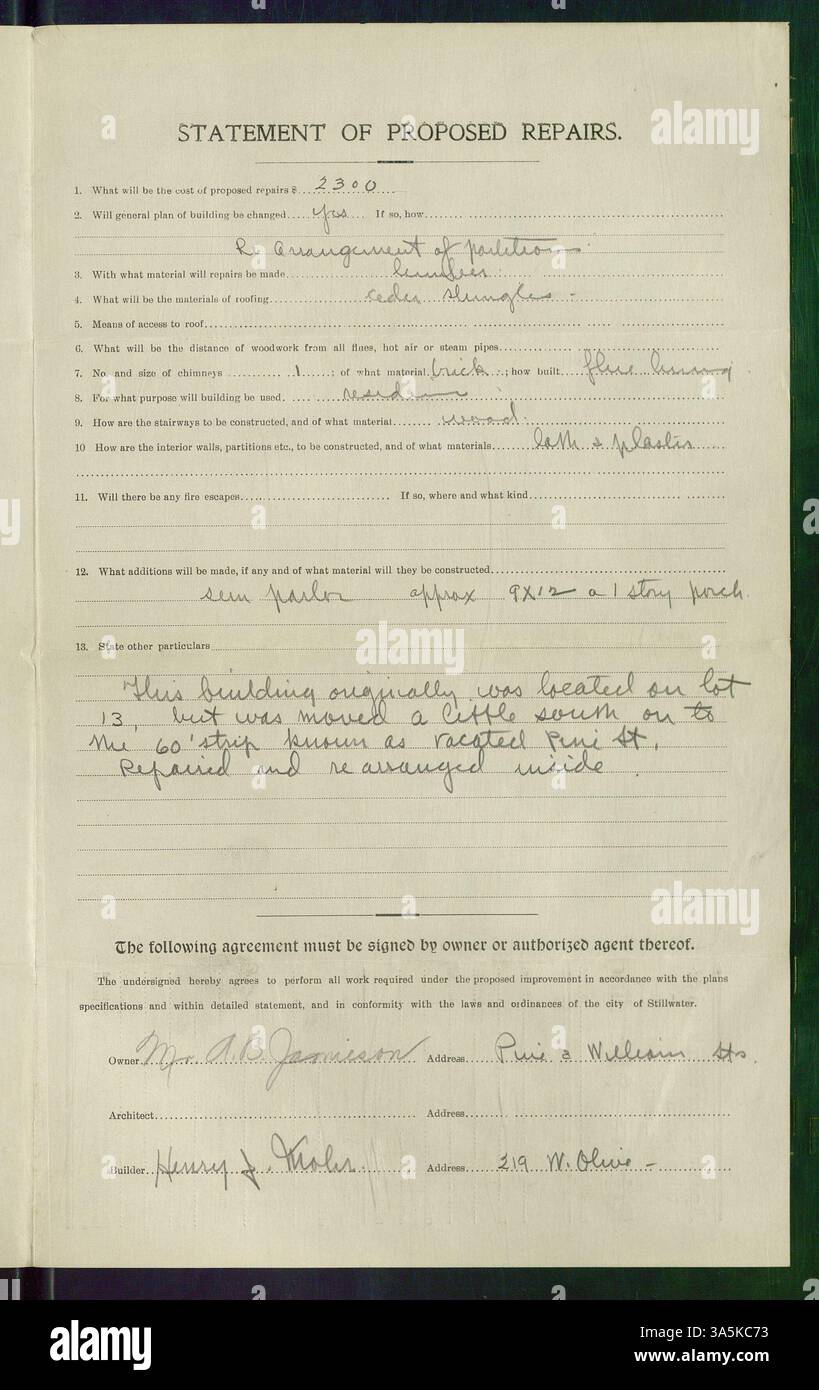 STATEMENT OF PROPOSED REPAIRS.
1. What will be the cost of proposed repairs $ 2300
2. Will general plan of building be changed yes If so, how
Re Arrangement of partitions
3. With what material will repairs be made lumber
4. What will be the materials of roofing ceder shingles -
5. Means of access to roof
6. What will be the distance of woodwork from all flues, hot air or steam pipes
7. No. and size of chimneys 1 ; of what material brick ; how built flue lining
8. For what purpose will building be used residence
9. How are the stairways to be constructed, and of what material wood
10 How are the interior walls, partitions etc., to be constructed, and of what materials lath & plaster
11. Will there be any fire escapes If so, where and what kind
12. What additions will be made, if any and of what material will they be constructed
parlor approx 9x12 a 1 story porch
13. State other particulars
This building originally was located on lot
13, but was moved a little south on to
the 60' strip known as vacated Pine St,
Repaired and rearranged inside.
The following agreement must be signed by owner or authorized agent thereof.
The undersigned hereby agrees to perform all work required under the proposed improvement in accordance with the plans
specifications and within detailed statement, and in conformity with the laws and ordinances of the city of Stillwater.
Owner Mr. A. B. Jamieson Address Pine & William Sts.
Architect Address
Builder Henry J. Address 219 W. Olive -
alamy
alamy
alamy
alamy
a
a
a
a
alamy
Image ID: 3A5KC73
www.alamy.com